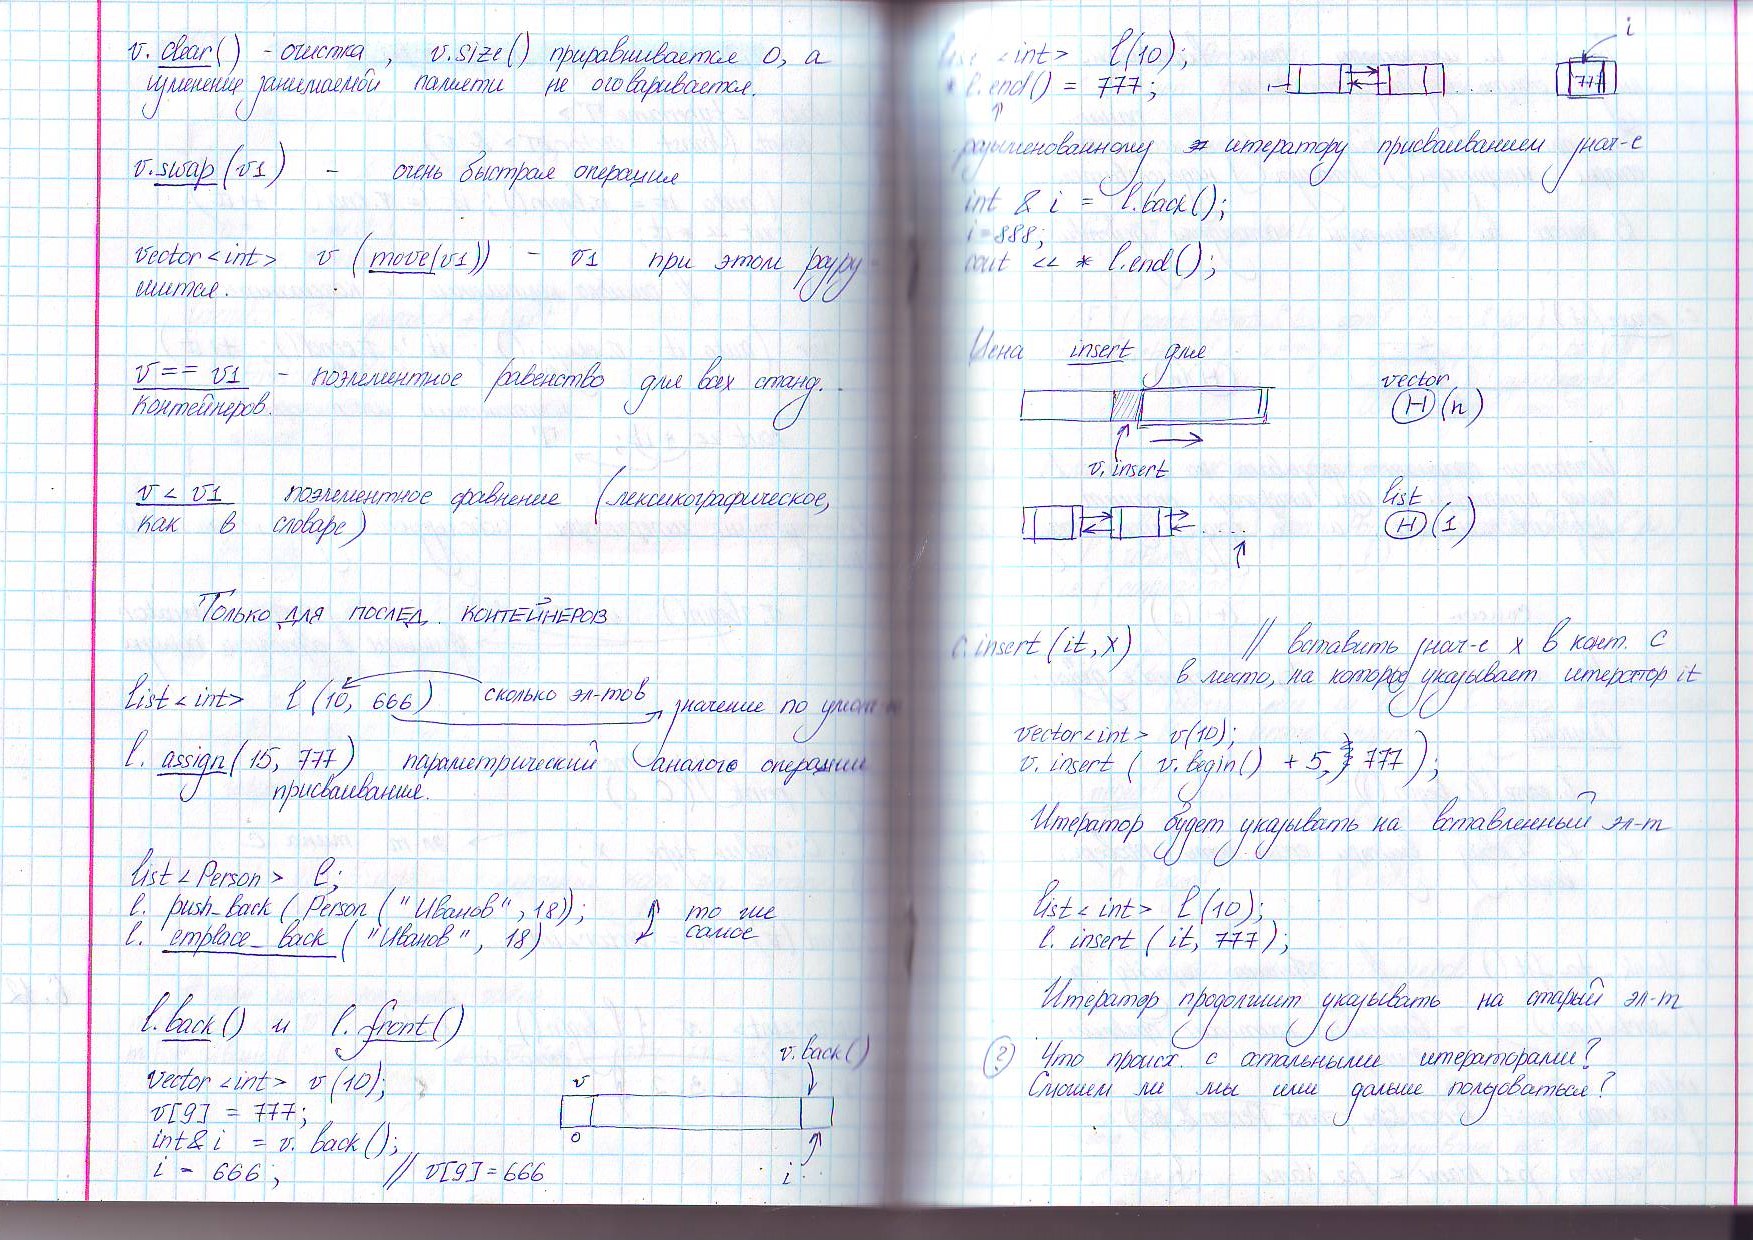 v. clear() - очистка , v.size() приравнивается 0, а
изменение занимаемой памяти не оговаривается.
v.swap(v1) - очень быстрая операция
vector<int> v (move(v1)) - v1 при этом разру-
шится.
v == v1 - поэлементное равенство для всех станд.
контейнеров.
v < v1 поэлементное сравнение (лексикографическое,
как в словаре)
Только для послед. контейнеров
list<int> l(10, 666) сколько эл-тов значение по умолч-ю
l. assign(15, 777) параметрический аналог операции
присваивания.
list<Person> l;
l. push_back(Person("Иванов", 18));
l. emplace_back("Иванов", 18)
то же
самое
l.back() и l.front()
vector<int> v(10);
v[9] = 777;
int& i = v. back();
i = 666; // v[9]=666
v
0
v.back()
i
list<int> l(10);
* l.end() = 777;
i
777
разыменованному итератору присваиванием знач-е
int & i = l.back();
i=888;
cout << * l.end();
Цена insert для
vector
Θ(n)
v. insert
list
Θ(1)
c.insert(it, x) // вставить знач-е x в конт. c
в место, на которое указывает итератор it
vector<int> v(10);
v. insert( v.begin() + 5, 777);
Итератор будет указывать на вставленный эл-т
list<int> l(10);
l. insert(it, 777);
Итератор продолжит указывать на старый эл-т
? Что происх. с остальными итераторами?
Сможем ли мы ими дальше пользоваться?